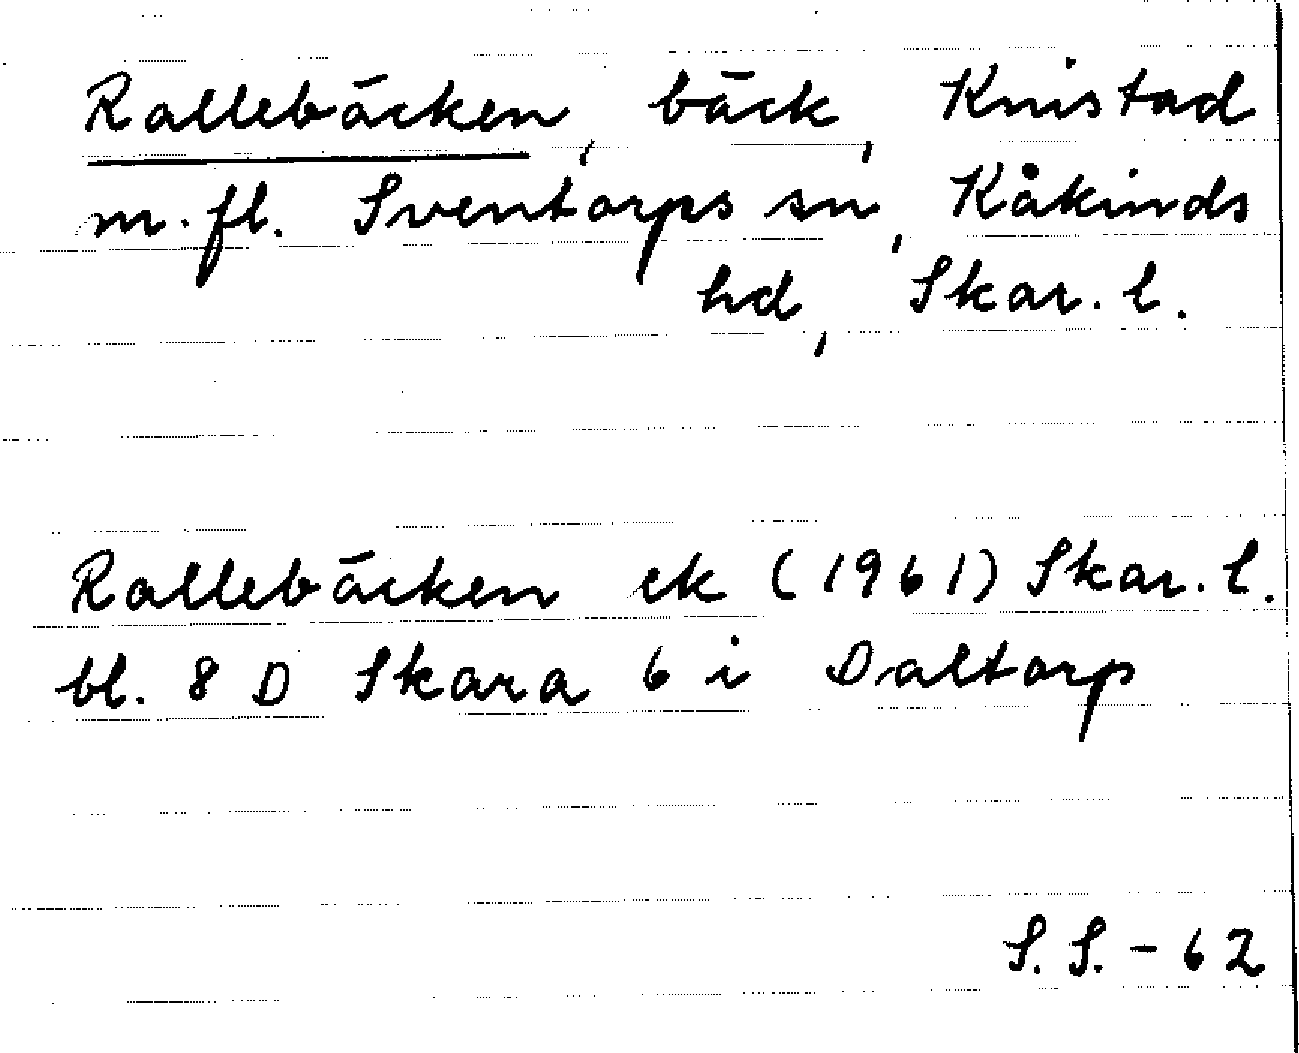 Rallebäcken, bäck, Knistad
m. fl. Sventorps sn, Kåkinds
hd, Skar. l.
Rallebäcken ek (1961) Skar. l.
bl. 8 D Skara 6 i Daltorp
S. S. - 62